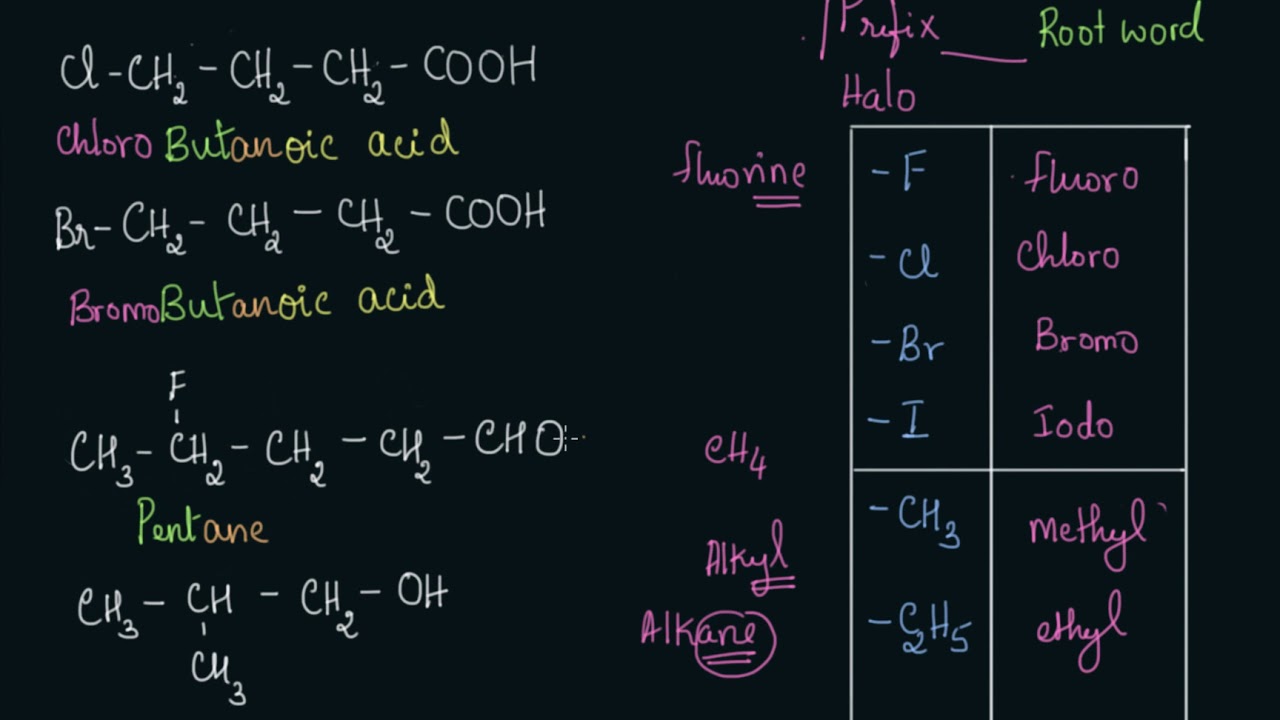 Cl-CH₂-CH₂-CH₂-COOH
Chloro Butanoic acid
Br-CH₂-CH₂-CH₂-COOH
BromoButanoic acid
F
CH₃-CH₂-CH₂-CH₂-CHO
Pentane
CH₃-CH-CH₂-OH
CH₃
Prefix ____ Root word
Halo
fluorine
-F fluoro
-Cl Chloro
-Br Bromo
-I Iodo
CH₄
-CH₃ Methyl
Alkyl
Alkane
-C₂H₅ ethyl